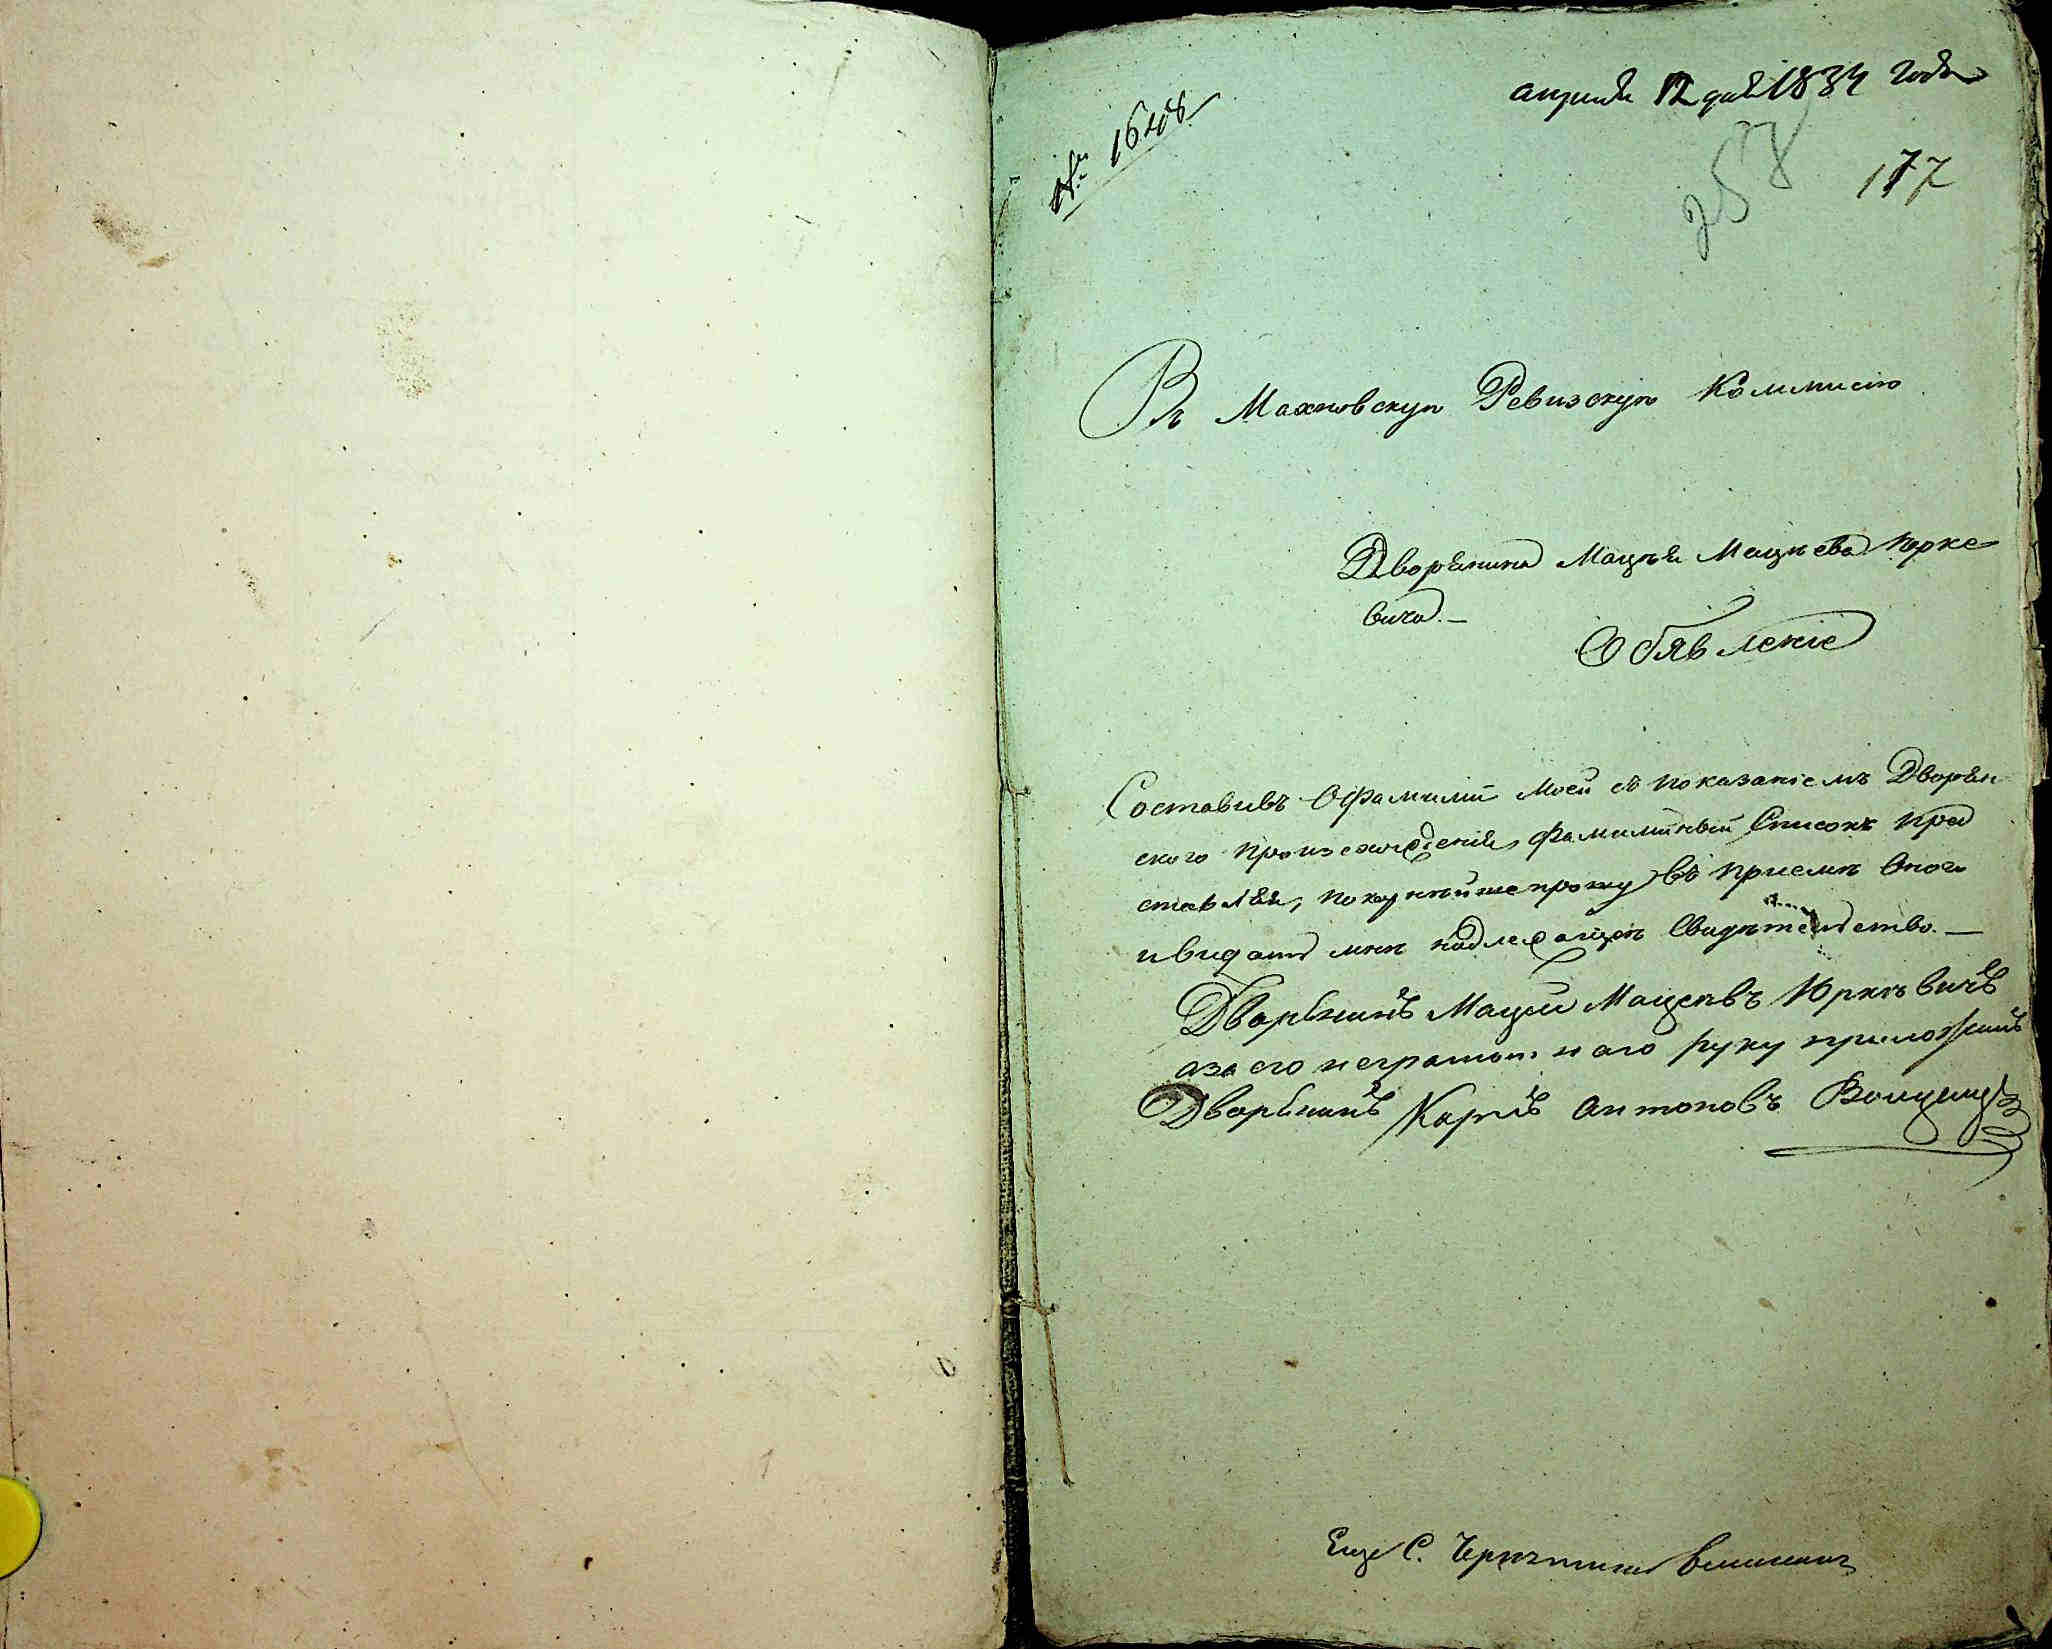 № 1648
апреля 12 дня 1834 года
258
177
Въ Махновскую Ревизскую Коммисію
Дворянина Мацѣя Мацѣева Юрке
вича. —
Обявленіе
Составивъ О фамиліи Моей съ показаніемъ Дворян
ского произсхожденія, фамилійный Списокъ пред
ставляя, покорнѣйше прошу въ приемѣ Оного
и видать мнѣ надлежащое Свидѣтельство. —
Дворянинъ Мацей Мацеевъ Юркевичъ
а за его неграмотнаго руку приложилъ
Дворянинъ Карлъ Антоновъ
Еще С.